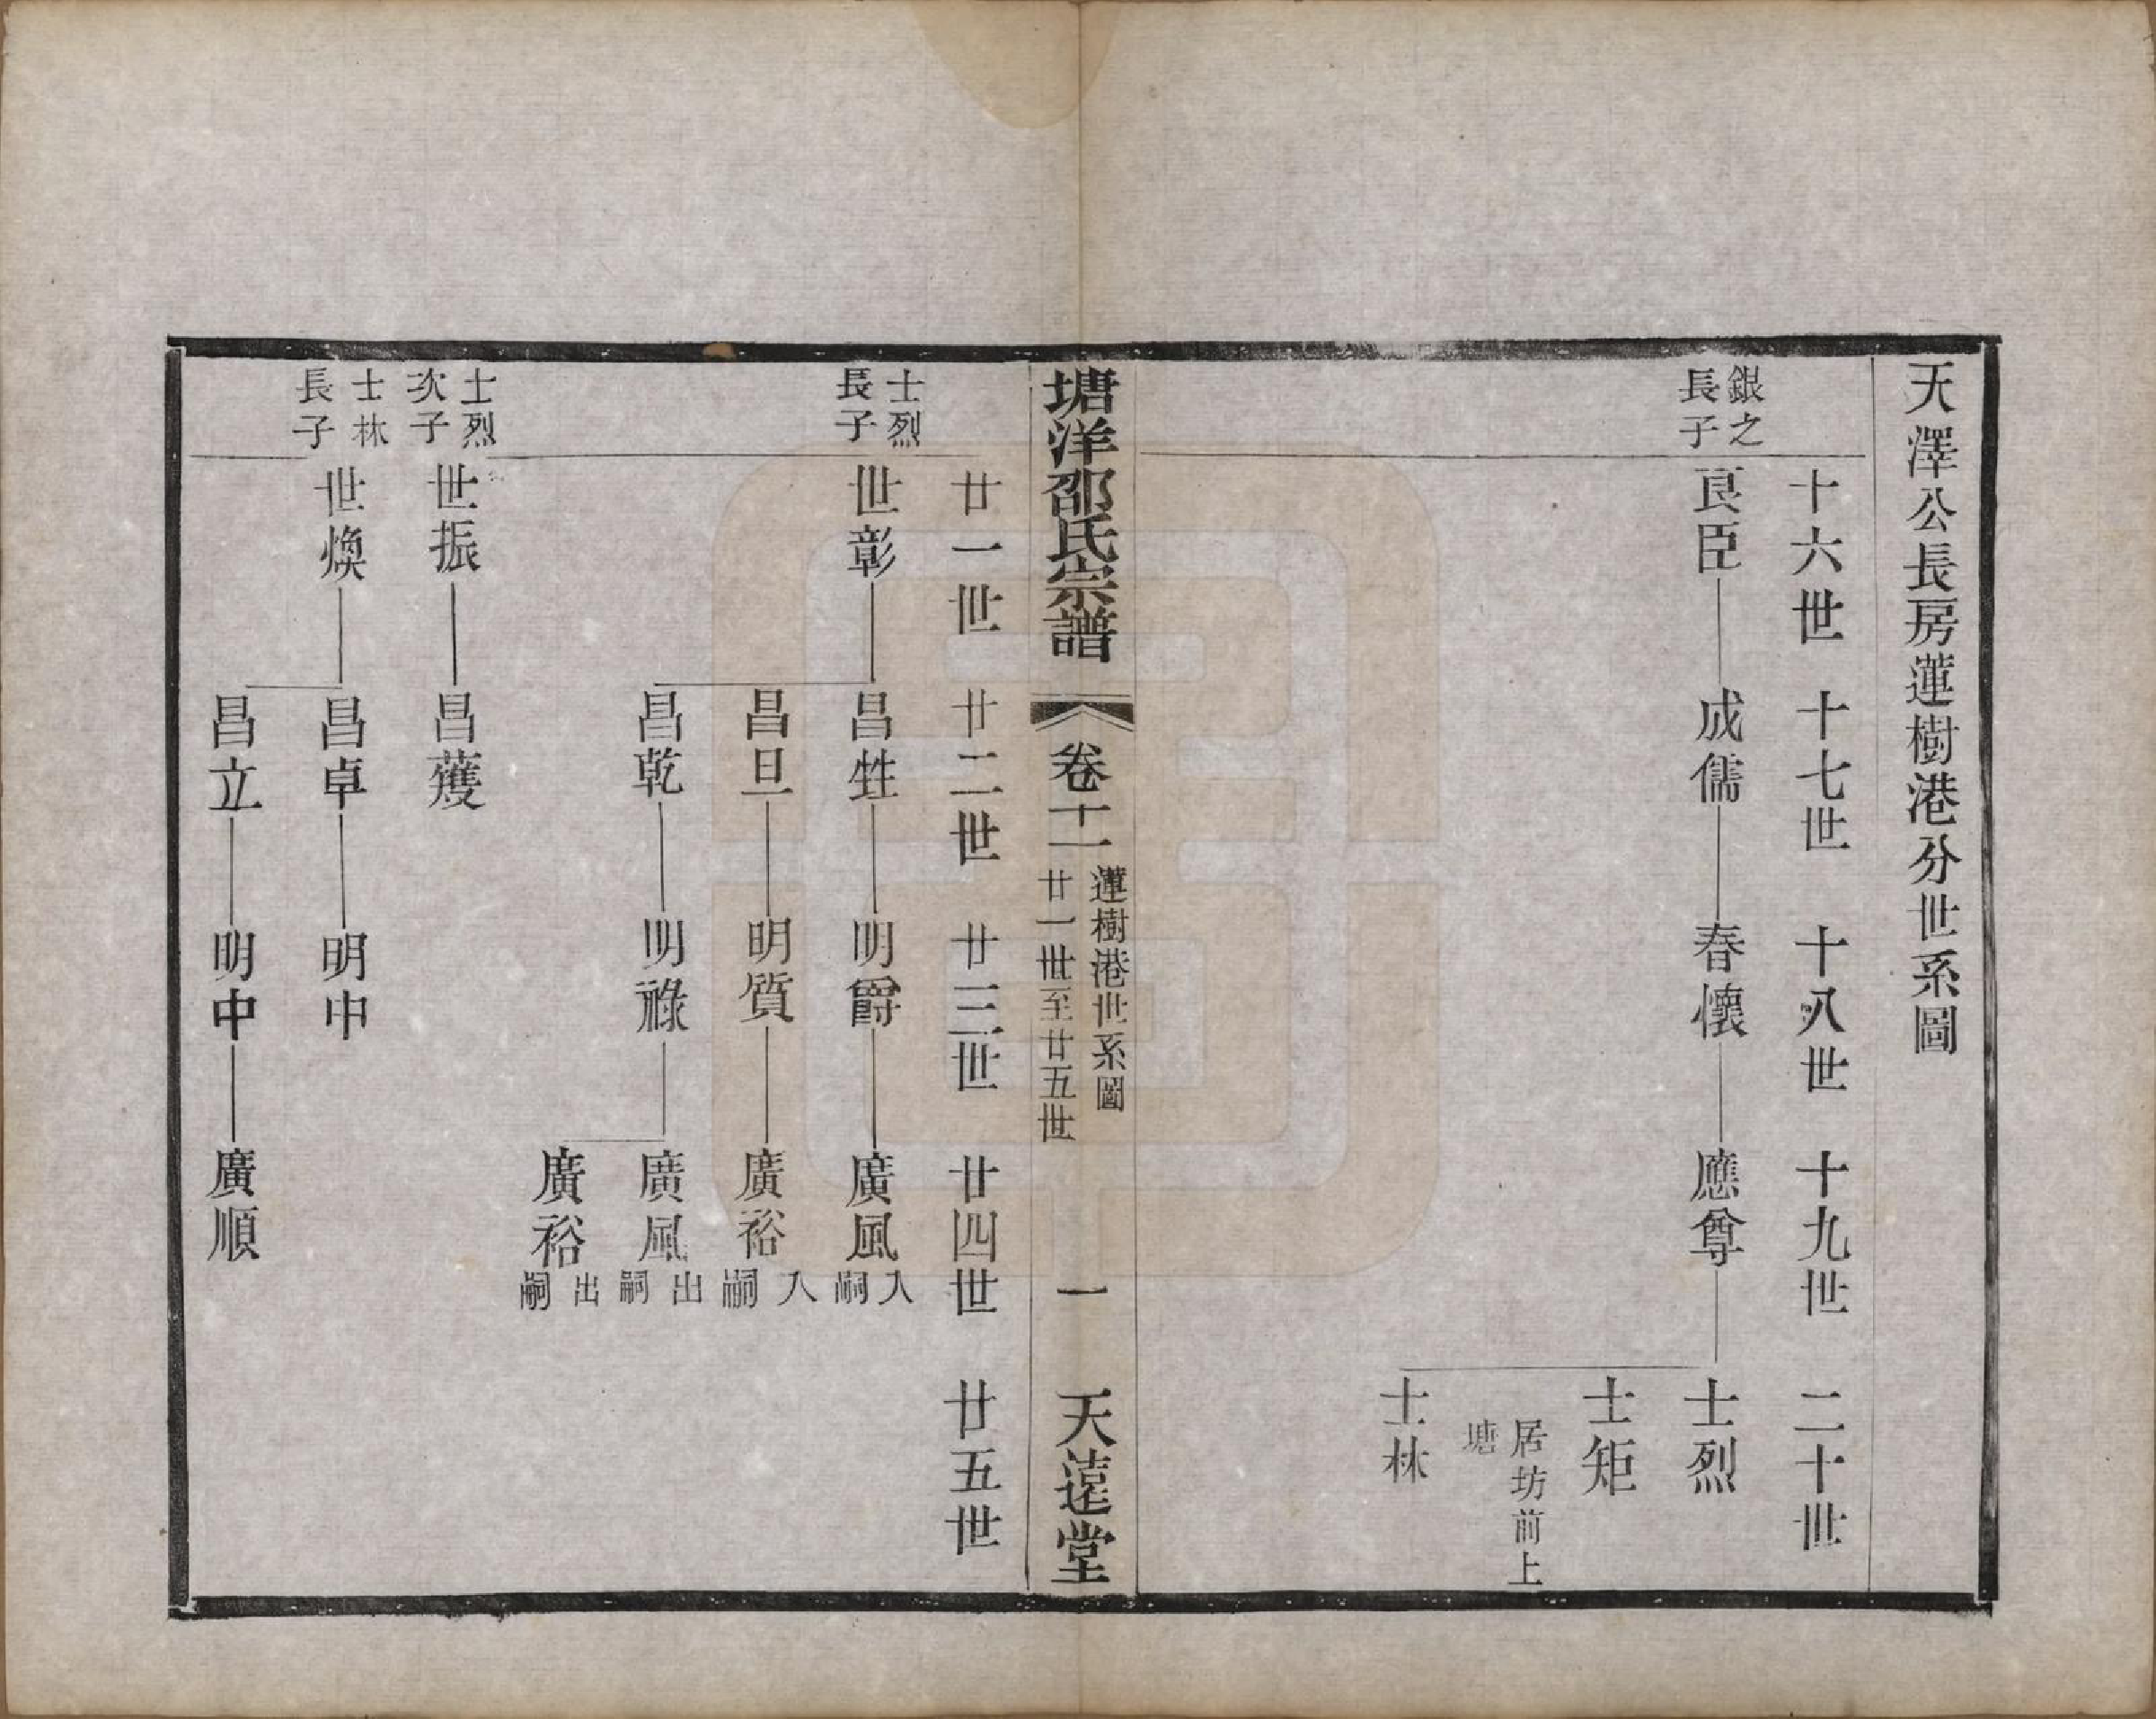 天澤公長房蓮樹港分世系圖
十六世　十七世　十八世　十九世　二十世
銀之
長子
良臣　成儒　春懷　應尊　士烈
士矩
居坊前上
塘
士林
塘洋邵氏宗譜　卷十一　蓮樹港世系圖
廿一世至廿五世
一　天遠堂
廿一世　廿二世　廿三世　廿四世　廿五世
士烈
長子
世彰　昌甡　明爵　廣風入嗣
昌旦　明質　廣裕入嗣
昌乾　明祿　廣風出嗣
廣裕出嗣
士烈
次子
世振　昌蒦
士林
長子
世煥　昌卓　明中
昌立　明中　廣順